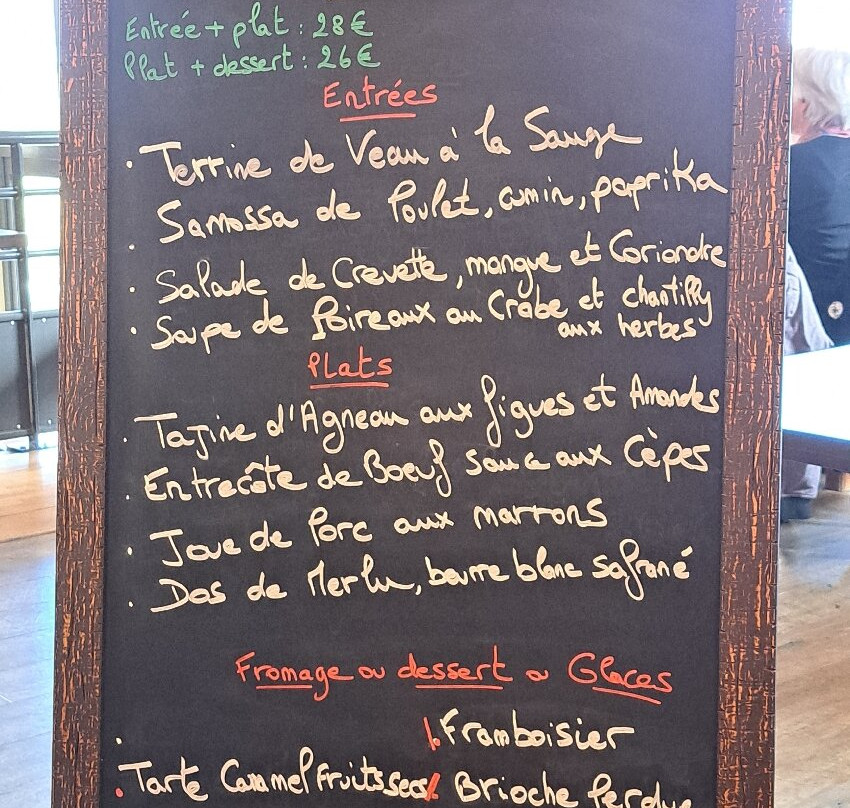 Entrée + plat : 28€
Plat + dessert : 26€
Entrées
· Terrine de Veau à la Sauge
· Samossa de Poulet, cumin, paprika
· Salade de Crevette, mangue et Coriandre
· Soupe de Poireaux au Crabe et chantilly
aux herbes
Plats
· Tajine d'Agneau aux figues et Amandes
· Entrecôte de Boeuf sauce aux Cèpes
· Joue de Porc aux marrons
· Dos de Merlu, beurre blanc safrané
Fromage ou dessert ou Glaces
· / Framboisier
· Tarte Caramel Fruits secs / Brioche Perdue